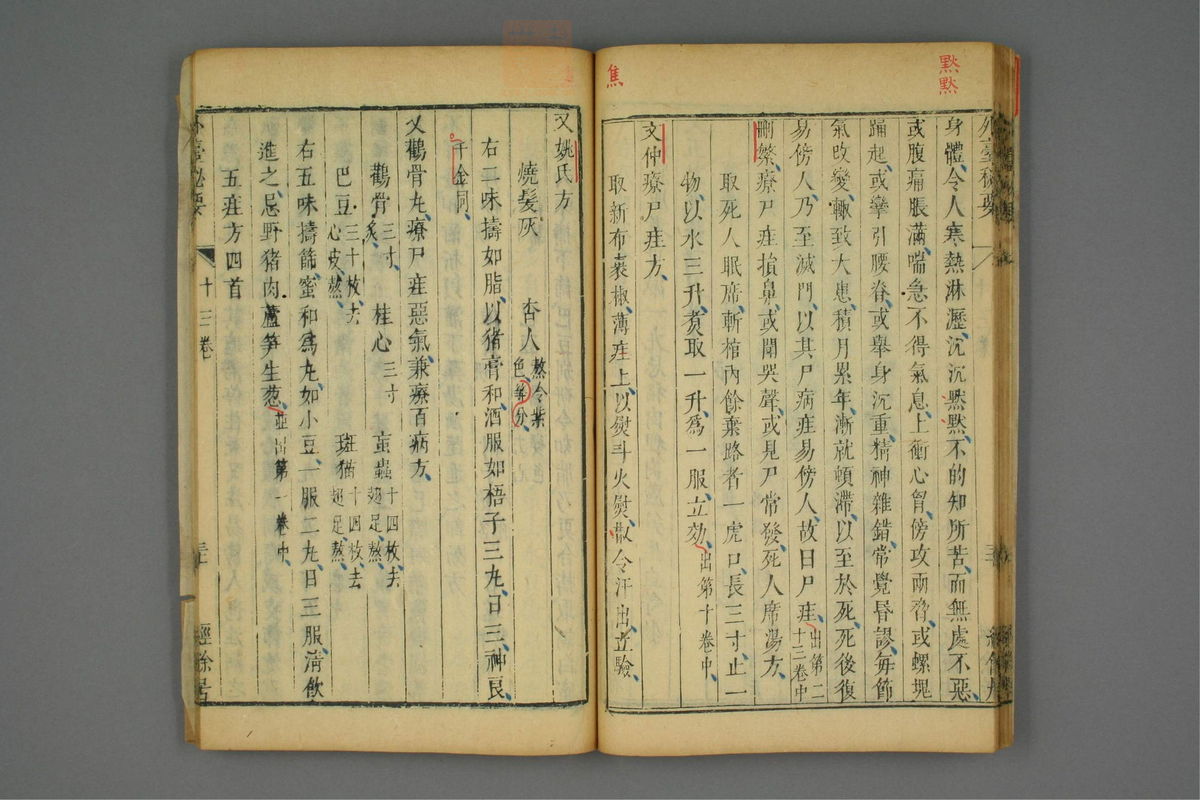 默默
身體令人寒熱淋瀝沉沉默默不的知所苦而無處不惡
或腹痛脹滿喘急不得氣息上衝心胷傍攻兩脅或螺塊
踊起或攣引腰脊或舉身沉重精神雜錯常覺昏謬每節
氣改變輙致大患積月累年漸就頓滯以至於死死後復
易傍人乃至滅門以其尸病疰易傍人故曰尸疰
出第二
十三卷中
刪繁療尸疰損鼻或聞哭聲或見尸常發死人席湯方
取死人眠席斬棺內餘棄路者一虎口長三寸止一
物以水三升煑取一升爲一服立効
出第十卷中
文仲療尸疰方
取新布裹椒薄疰上以熨斗火熨散令汗出立驗
焦
又姚氏方
燒髮灰 杏人
熬令紫
色等分
右二味擣如脂以猪膏和酒服如梧子三丸日三神良
千金同
又鸛骨丸療尸疰惡氣兼療百病方
鸛骨
三寸
炙
桂心
三寸
䖟蟲
十四枚去
翅足熬
巴豆
三十枚去
心皮熬
斑猫
十四枚去
翅足熬
右五味擣篩蜜和爲丸如小豆一服二丸日三服淸飲
進之忌野猪肉蘆笋生葱
並出第一卷中
五疰方四首
外臺祕要
十三卷
經餘居